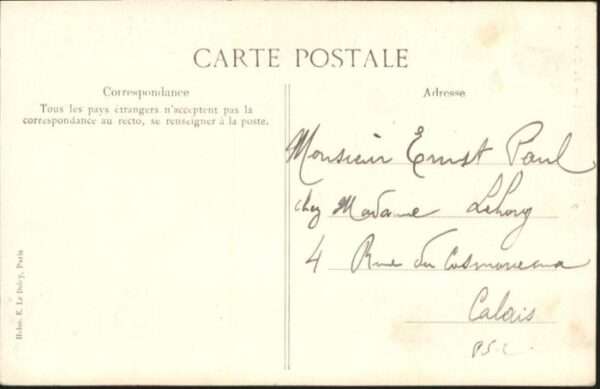 CARTE POSTALE
Correspondance
Tous les pays étrangers n'acceptent pas la
correspondance au recto, se renseigner à la poste.
Adresse
Monsieur Ernst Paul
chez Madame
4 Rue du
Calais
Hélio. E. Le Deley, Paris